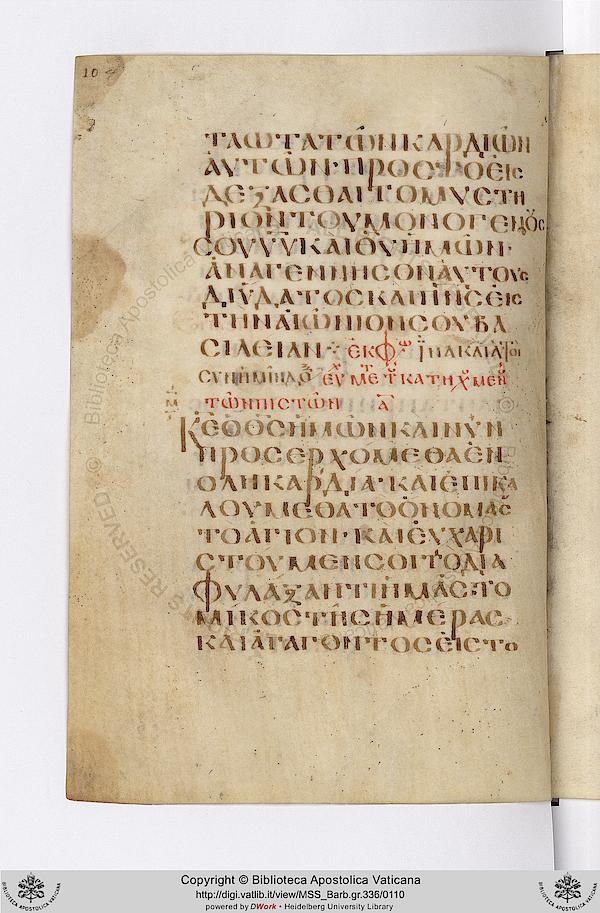 10
ΤΑ ΩΤΑ ΤΩΝ ΚΑΡΔΙΩΝ
ΑΥΤΩΝ· ΠΡΟΣ ΤΟ ΕΙΣ
ΔΕΞΑΣΘΑΙ ΤΟ ΜΥΣΤΗ
ΡΙΟΝ ΤΟΥ ΜΟΝΟΓΕΝΟΥΣ
ΣΟΥ ΥΥ ΚΑΙ ΘΥ ΗΜΩΝ·
ΑΝΑΓΕΝΝΗΣΟΝ ΑΥΤΟΥΣ
ΔΙ ΥΔΑΤΟΣ ΚΑΙ ΠΝΣ ΕΙΣ
ΤΗΝ ΑΙΩΝΙΟΝ ΣΟΥ ΒΑ
ΣΙΛΕΙΑΝ ΕΚΦΩ ΙΝΑ ΚΑΙ ΑΥΤΟΙ
ΣΥΝ ΗΜΙΝ ΔΟΞ ΕΥ ΜΕΤ ΚΑΤΗΧΜΕΝ
ΤΩΝ ΠΙΣΤΩΝ Α
ΚΕ Ο ΘΣ ΗΜΩΝ ΚΑΙ ΝΥΝ
ΠΡΟΣΕΡΧΟΜΕΘΑ ΕΝ
ΟΛΗ ΚΑΡΔΙΑ· ΚΑΙ ΕΠΙΚΑ
ΛΟΥΜΕΘΑ ΤΟ ΟΝΟΜΑ ΣΟΥ
ΤΟ ΑΓΙΟΝ· ΚΑΙ ΕΥΧΑΡΙ
ΣΤΟΥΜΕΝ ΣΟΙ ΤΩ ΔΙΑ
ΦΥΛΑΞΑΝΤΙ ΗΜΑΣ ΤΟ
ΜΙΚΟΣ ΤΗΣ ΗΜΕΡΑΣ
ΚΑΙ ΑΓΑΓΟΝΤΟΣ ΕΙΣ ΤΟ
Copyright © Biblioteca Apostolica Vaticana
http://digi.vatlib.it/view/MSS_Barb.gr.336/0110
powered by DWork - Heidelberg University Library